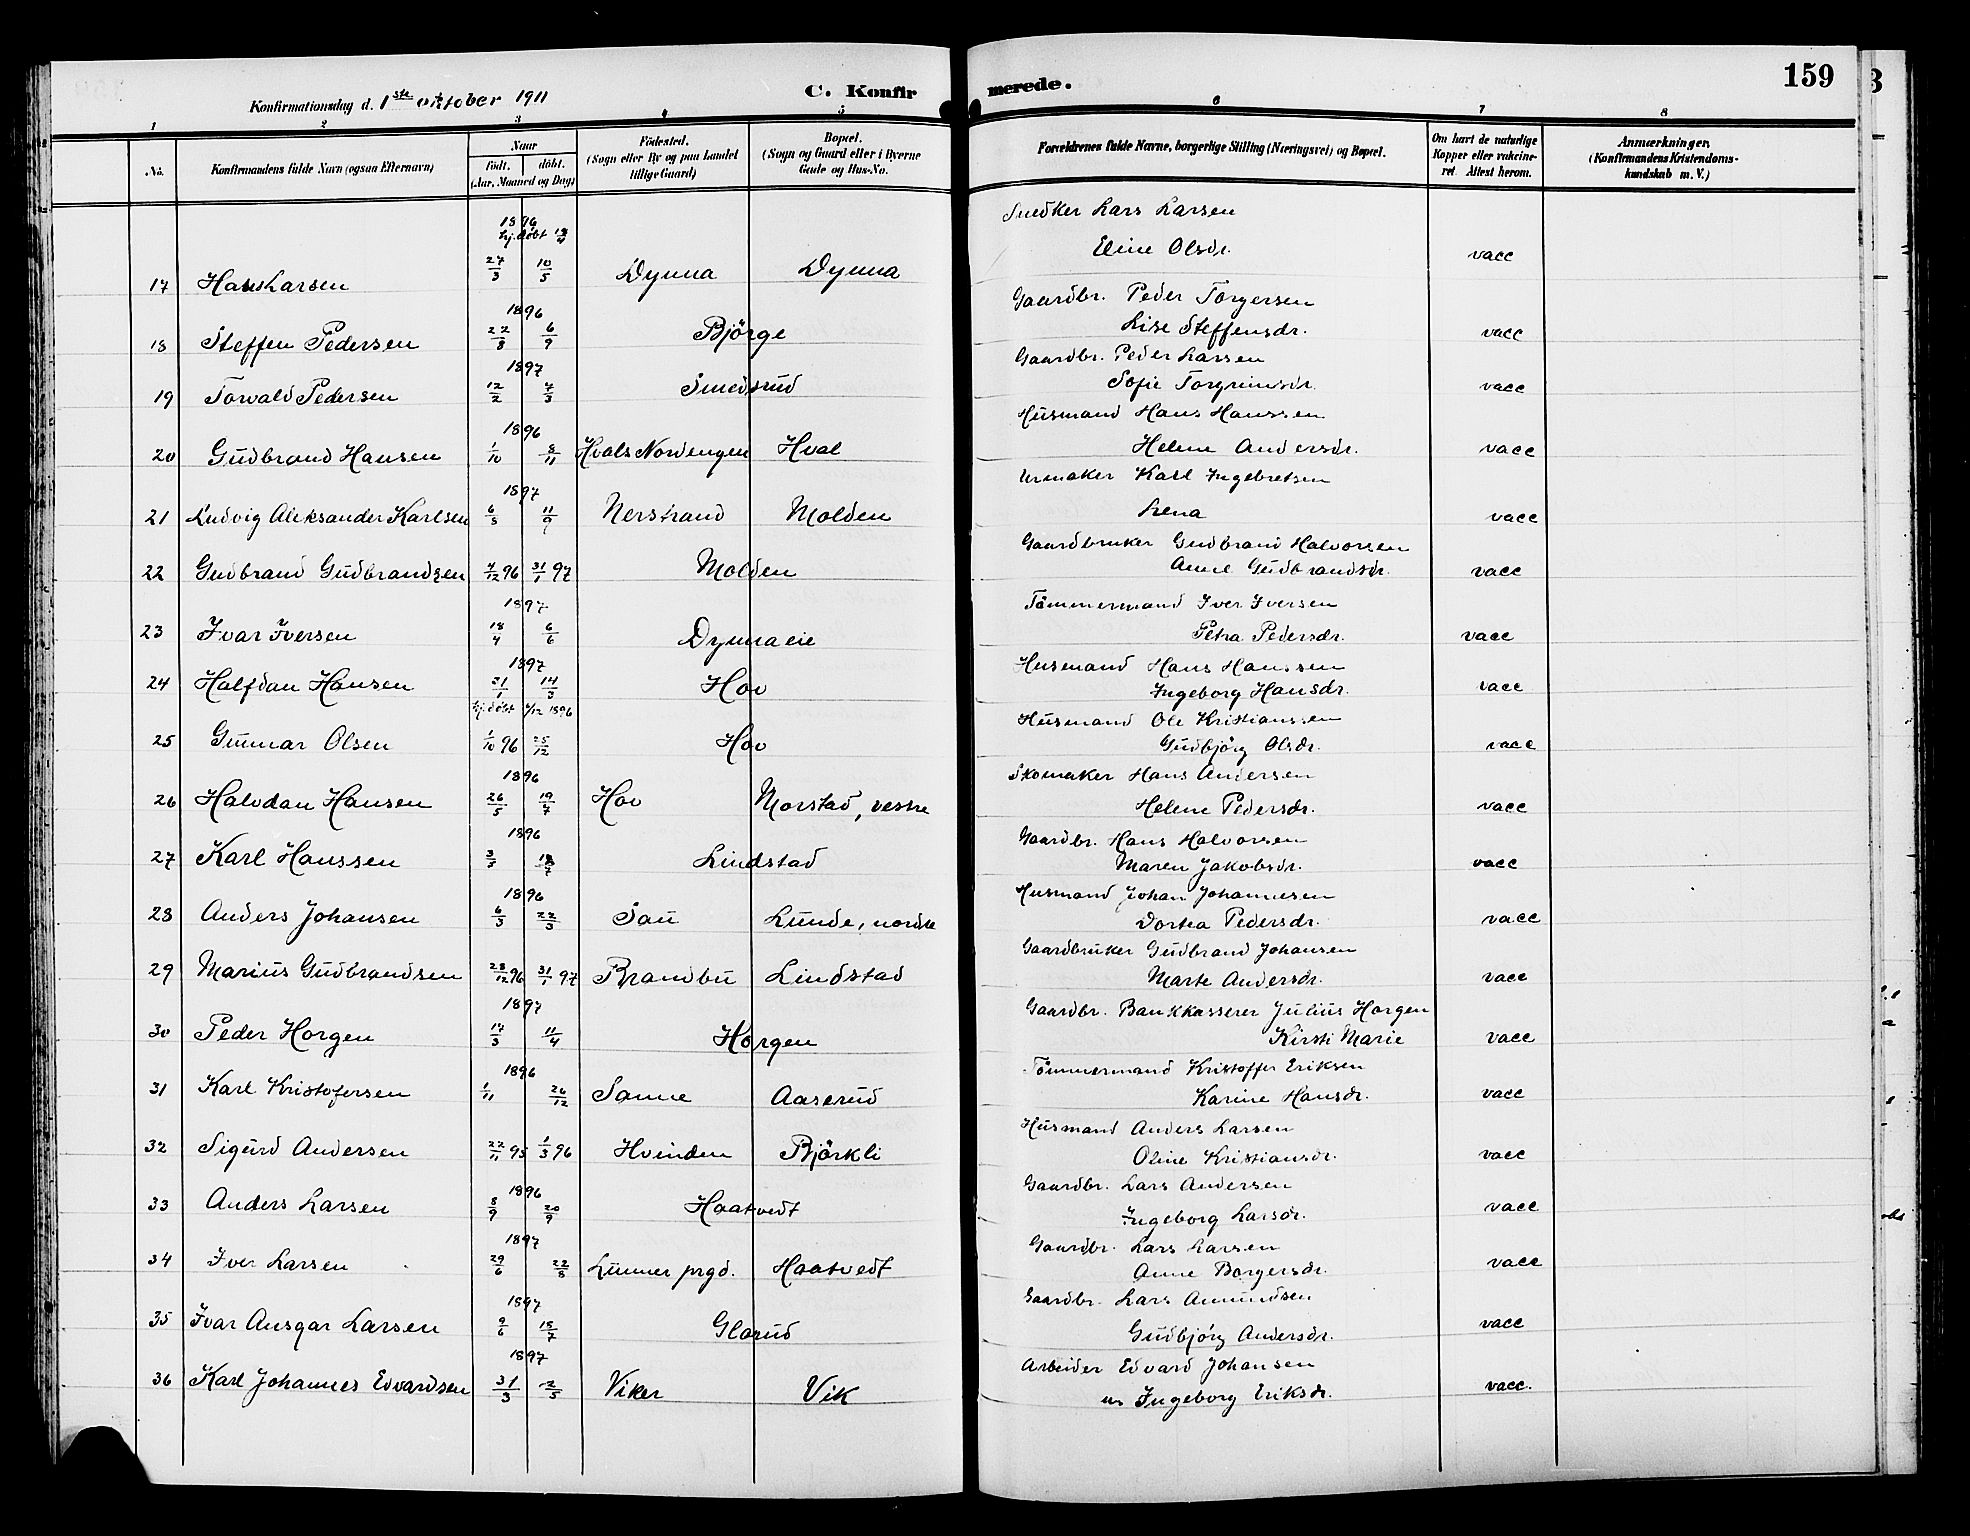 Konfirmationsdag d. 1ste oktober 1911 C. Konfirmerede. 159
1 2 3 4 5 6 7 8
No. Konfirmandens fulde Navn (ogsaa Efternavn) Naar født. døbt. (Aar, Maaned og Dag) Fødested. (Sogn eller By og paa Landet tillige Gaard) Bopæl. (Sogn og Gaard eller i Byerne Gade og Hus-No. Forældrenes fulde Navne, borgerlige Stilling (Næringsvei) og Bopæl. Om havt de naturlige Kopper eller vakcineret. Attest herom. Anmærkninger. (Konfirmandens Kristendomskundskab m. V.)
1896 hj.døbt 12/4 Snedker Lars Larsen
17 Hans Larsen 27/3 10/5 Dynna Dynna Eline Olsdr. vacc
1896 Gaardbr. Peder Torgersen
18 Steffen Pedersen 22/8 6/9 Bjørge Lise Steffensdr. vacc
1897 Gaardbr. Peder Larsen
19 Torvald Pedersen 12/2 7/3 Smedsrud Sofie Torgrimsdr. vacc
1896 Husmand Hans Hanssen
20 Gudbrand Hansen 1/10 8/11 Hvals Nordengen Hval Helene Andersdr. vacc
1897 Urmaker Karl Ingebretsen
21 Ludvig Aleksander Karlsen 6/8 11/9 Nerstrand Molden Lena vacc
Gaardbruker Gudbrand Halvorsen
22 Gudbrand Gudbrandsen 4/12 96 31/1 97 Molden Anne Gudbrandsdr. vacc
1897 Tømmermand Iver Iversen
23 Ivar Iversen 18/4 6/6 Dynnaeie Petra Pedersdr. vacc
1897 Husmand Hans Hanssen
24 Halfdan Hansen 31/1 14/3 Hov Ingeborg Hansdr. vacc
hj.døbt 4/12 1896 Husmand Ole Kristianssen
25 Gunnar Olsen 1/10 96 25/12 Hov Gudbjørg Olsdr. vacc
1896 Skomaker Hans Andersen
26 Halvdan Hansen 26/5 19/7 Hov Morstad, vestre Helene Pedersdr. vacc
1896 Gaardbr. Hans Halvorsen
27 Karl Hanssen 3/3 Lindstad Maren Jakobsdr. vacc
1896 Husmand Johan Johannesen
28 Anders Johansen 6/3 22/3 Sau Lunde, nordre Dortea Pedersdr. vacc
Gaardbruker Gudbrand Johansen
29 Marius Gudbrandsen 28/12 96 31/1 97 Brandbu Lindstad Marte Andersdr. vacc
1897 Gaardbr. Bankkasserer Julius Horgen
30 Peder Horgen 14/3 11/4 Horgen Kirsti Marie vacc
1896 Tømmermand Kristoffer Eriksen
31 Karl Kristofersen 1/11 26/12 Sanne Aaserud Karine Hansdr. vacc
Husmand Anders Larsen
32 Sigurd Andersen 22/11 95 1/3 96 Hvinden Bjørkli Oline Kristiansdr. vacc
1896 Gaardbr. Lars Andersen
33 Anders Larsen 8/9 20/9 Haatvedt Ingeborg Larsdr. vacc
1897 Gaardbr. Lars Larsen
34 Iver Larsen 29/6 22/8 Lunner prgd. Haatvedt Anne Borgersdr. vacc
1897 Gaardbr. Lars Amundsen
35 Ivar Ansgar Larsen 9/6 18/7 Glorud Gudbjørg Andersdr. vacc
1897 Arbeider Edvard Johansen
36 Karl Johannes Edvardsen 31/3 2/5 Viker Vik Ingeborg Eriksdr. vacc.